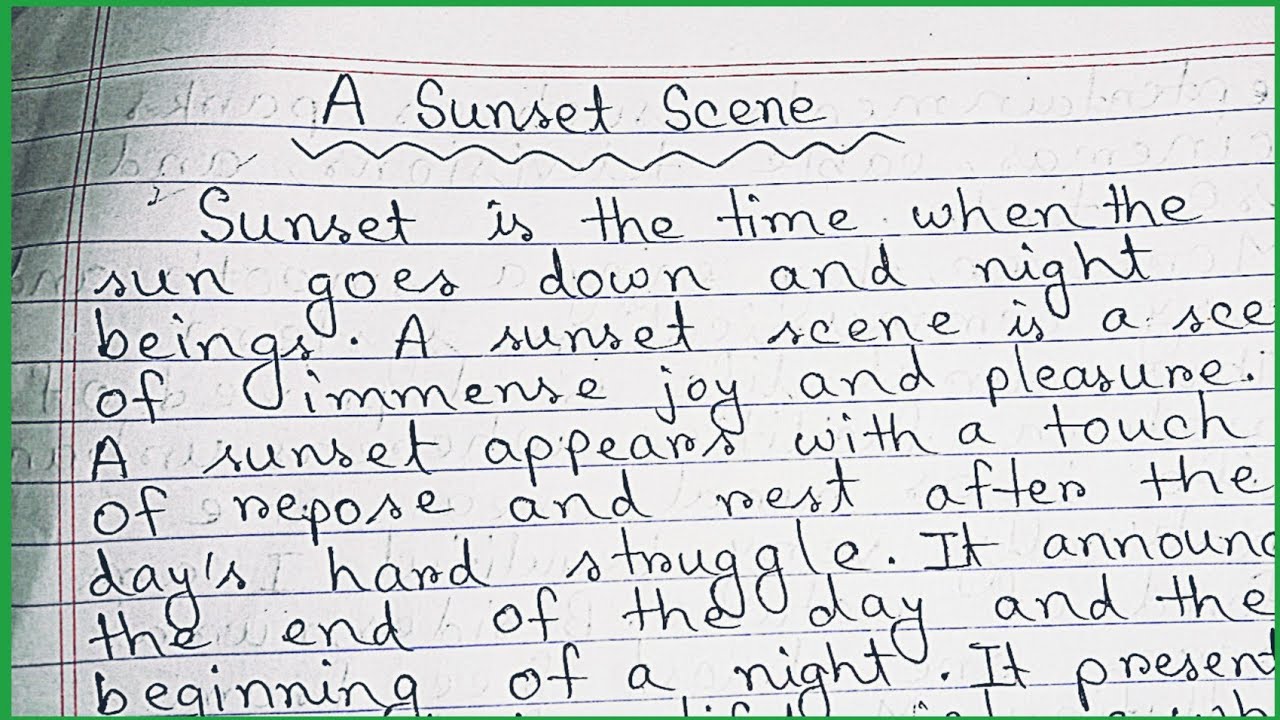 A Sunset Scene
Sunset is the time when the
sun goes down and night
beings. A sunset scene is a sce
of immense joy and pleasure.
A sunset appears with a touch
of repose and rest after the
day's hard struggle. It announc
the end of the day and the
beginning of a night. It present